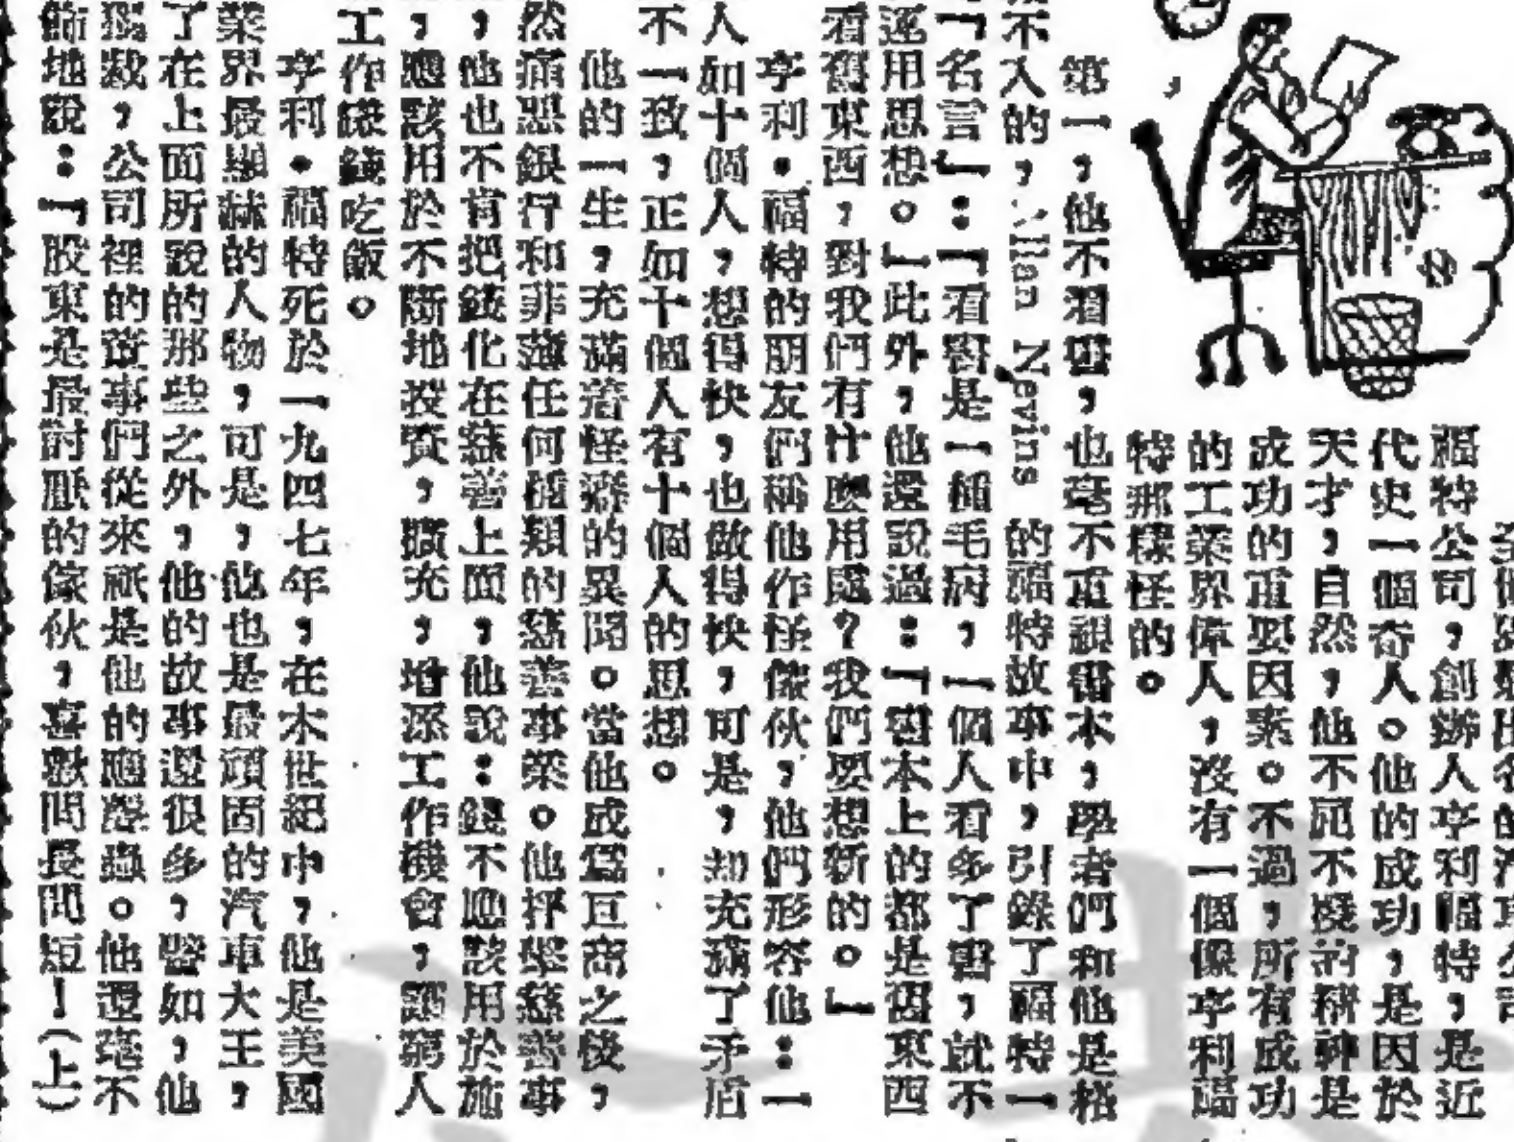 全個
出名的汽車公司
福特公司，創辦人亨利福特，是近
代史一個奇人。他的成功，是因於
天才，自然，他不屈不撓的精神是
成功的重要因素。不過，所有成功
的工業界偉人，沒有一個像亨利福
特那樣怪的。
第一，他不看書，也毫不重視書本，學者們和他是格
不入的，Allan Nevins 的福特故事中，引錄了福特一
「名言」：「看書是一種毛病，一個人看多了書，就不
運用思想。」此外，他還說過：「書本上的都是舊東西
看舊東西，對我們有什麼用處？我們要想新的。」
亨利•福特的朋友們稱他作怪傢伙，他們形容他：一
人如十個人，想得快，也做得快，可是，却充滿了矛盾
不一致，正如十個人有十個人的思想。
他的一生，充滿着怪癖的異聞。當他成爲巨商之後，
然痛惡銀行和非薄任何種類的慈善事業。他抨擊慈善事
，他也不肯把錢化在慈善上面，他說：錢不應該用於施
，應該用於不斷地投資，擴充，增添工作機會，讓窮人
工作賺錢吃飯。
亨利•福特死於一九四七年，在本世紀中，他是美國
業界最顯赫的人物，可是，他也是最頑固的汽車大王，
了在上面所說的那些之外，他的故事還很多，譬如，他
獨裁，公司裡的董事們從來祇是他的應聲蟲。他還毫不
飾地說：「股東是最討厭的傢伙，喜歡問長問短！(上)